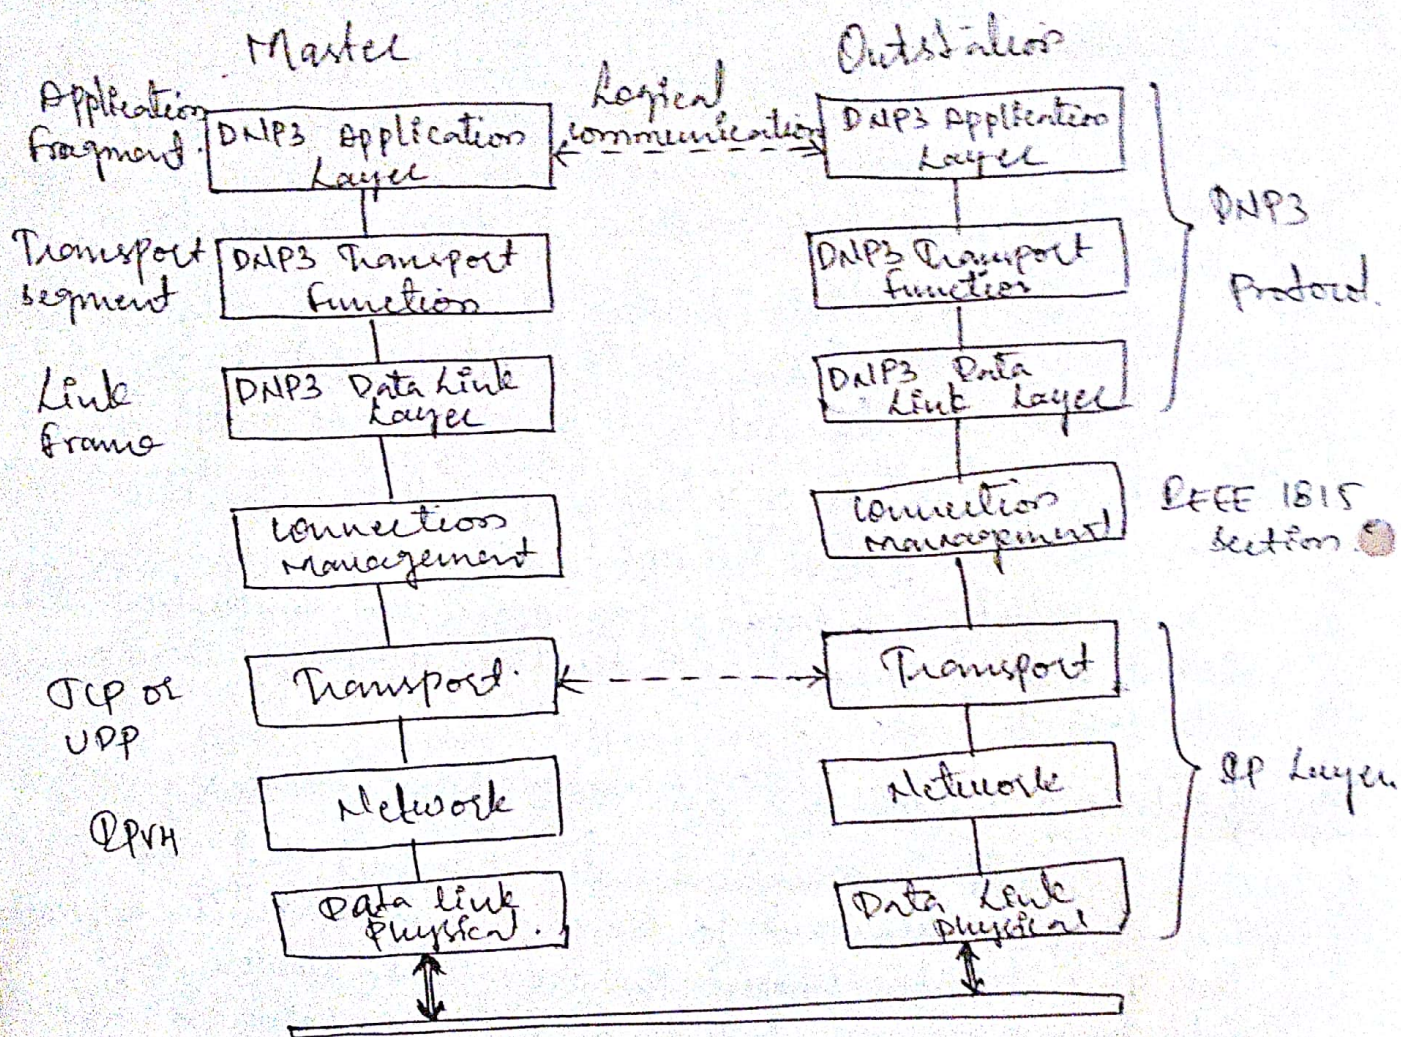 Master
Outstation
Application
fragment.
DNP3 Application
Layer
Logical
communication
DNP3 Application
Layer
Transport
segment
DNP3 Transport
function
DNP3 Transport
function
DNP3
Protocol.
Link
frame
DNP3 Data Link
Layer
DNP3 Data
Link Layer
Connection
Management
Connection
Management
IEEE 1815
section
TCP or
UDP
Transport.
Transport
IPV4
Network
Network
IP Layer
Data link
physical.
Data Link
physical